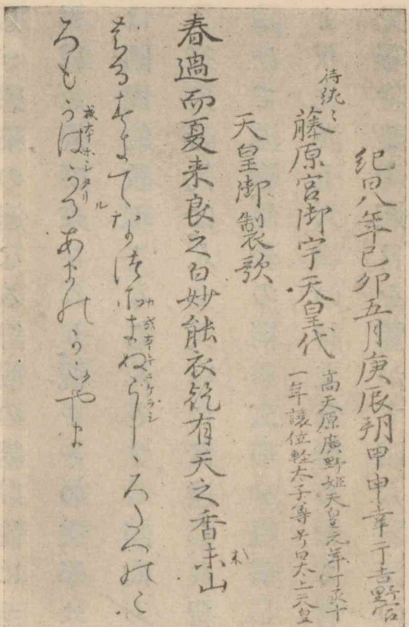 紀曰八年己卯五月庚辰朔甲申幸于吉野宮
藤原宮御宇天皇代
高天原廣野姫天皇元年丁亥十
一年譲位軽太子尊号曰太上天皇
天皇御製歌
春過而夏来良之白妙能衣乾有天之香未山
来
はるすきてなつそきぬらしゝろたへのこ
ろもかはかるあまのかくやま
或本ホシタリ
ル